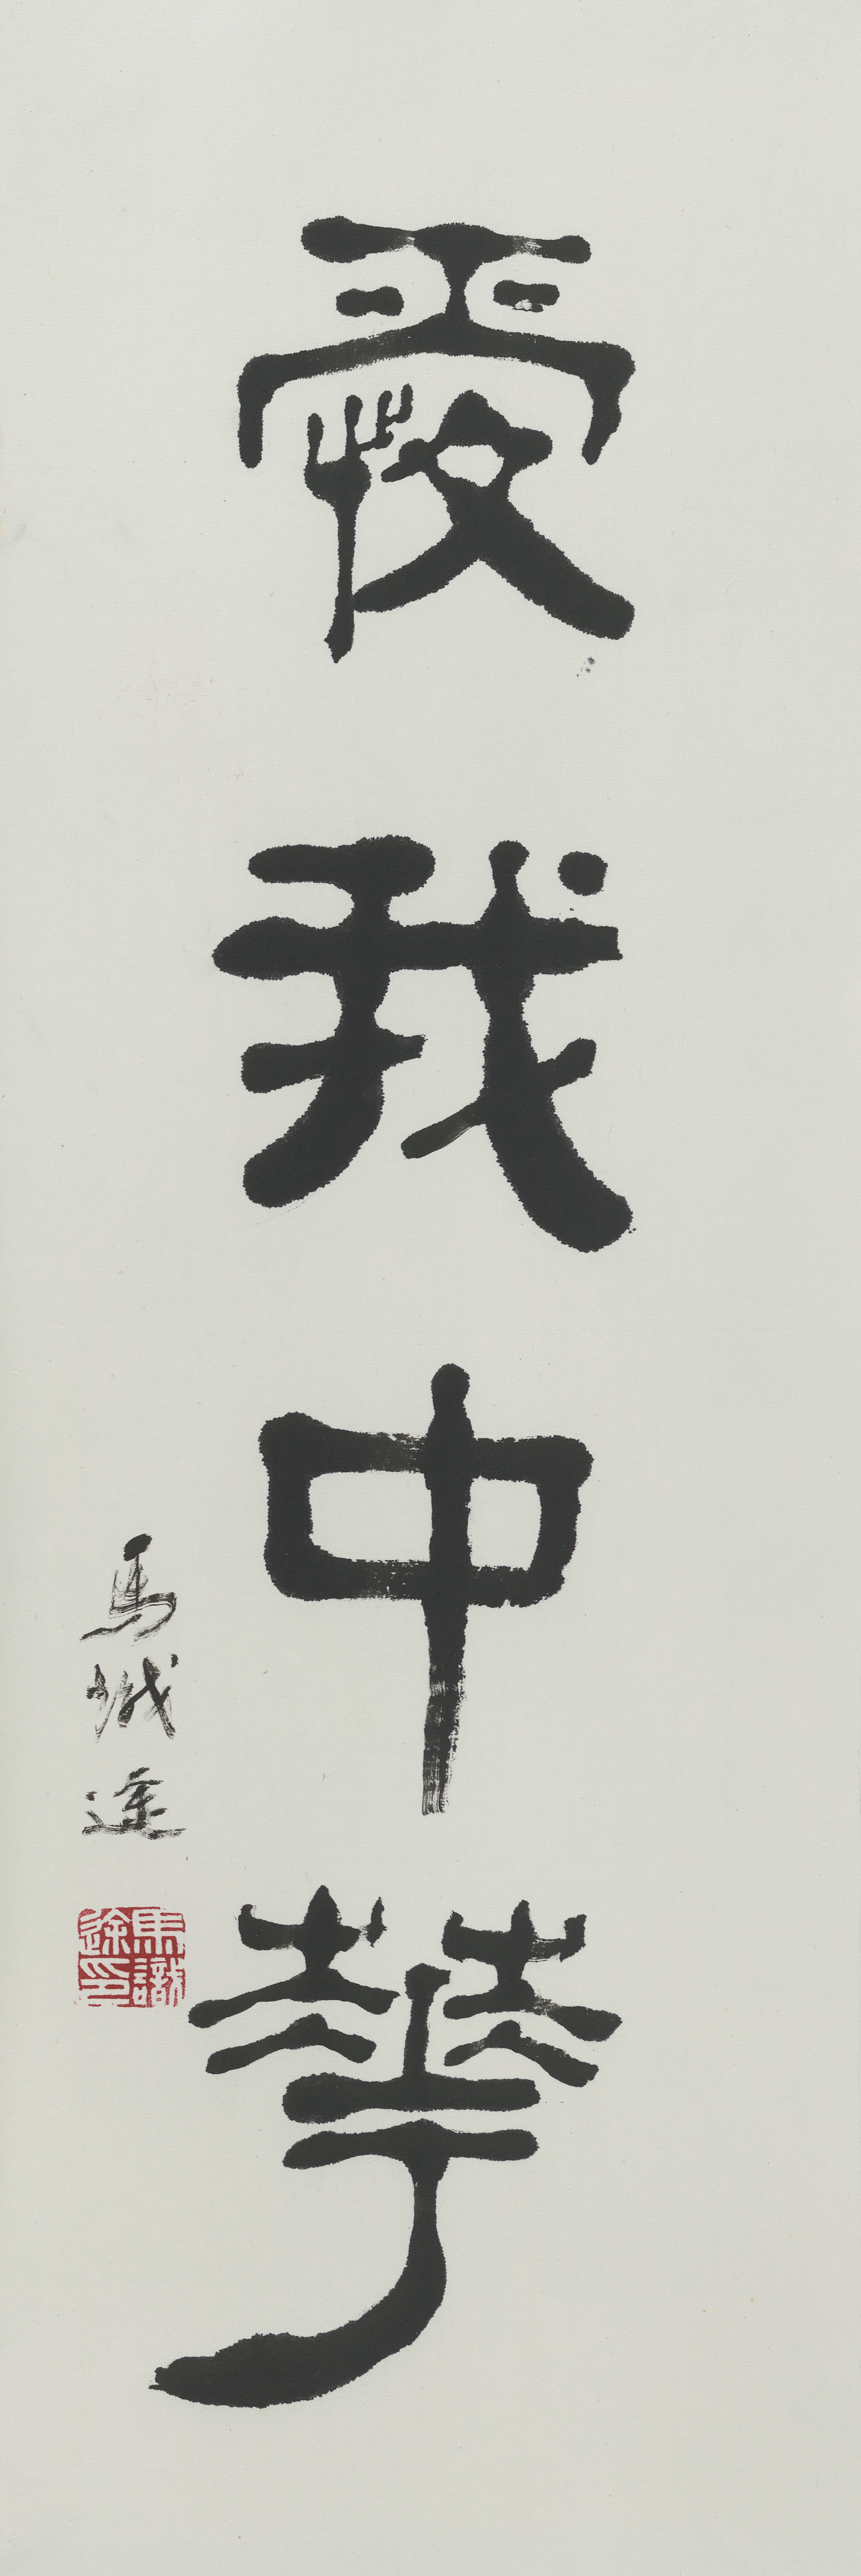 爱我中華
馬識途
馬識途印